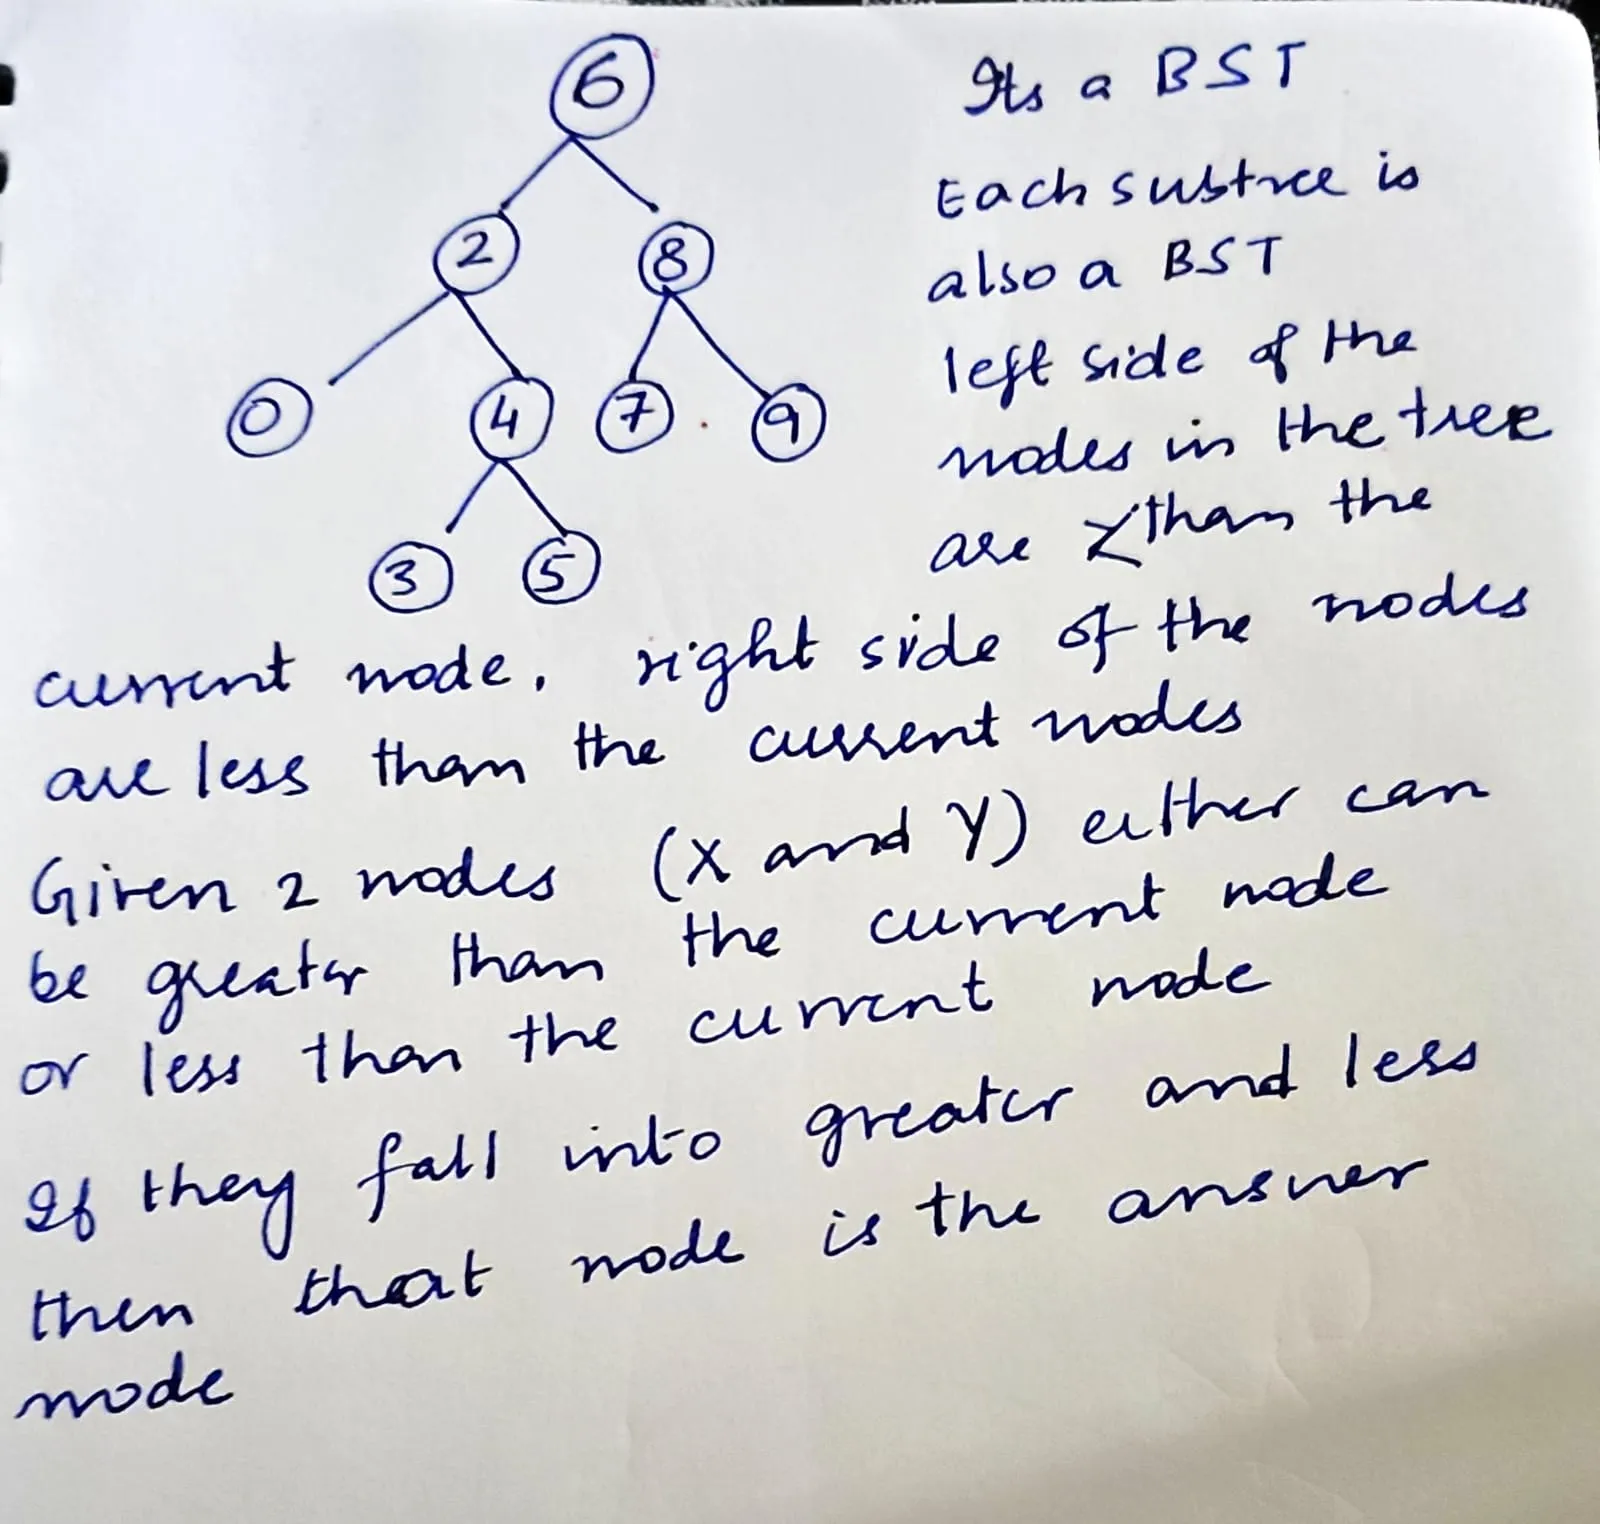 6
2 8
0 4 7 9
3 5
Its a BST
Each subtree is
also a BST
left side of the
nodes in the tree
are < than the
current node, right side of the nodes
are less than the current nodes
Given 2 nodes (X and Y) either can
be greater than the current node
or less than the current node
If they fall into greater and less
then that node is the answer
node